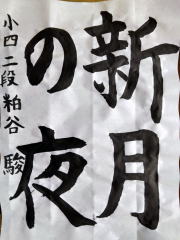 新月
の夜
小四 二段 粕谷 駿